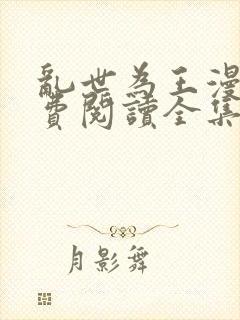 亂世為王漫
費閱讀全集
月影舞